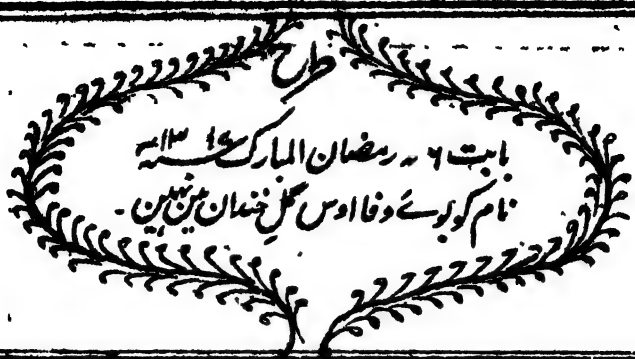 طرح
بابت ۶ ؍ رمضان المبارک سنہ ۱۳ ھ
نام کو بوے وفا اوس گلِ خندان مین نہین ۔